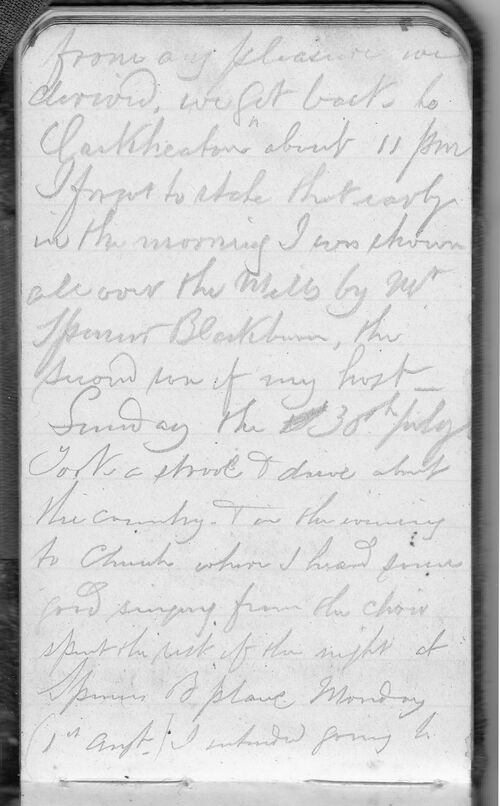 from any pleasure we
derived, we got back to
Clackheaton about 11 pm
I forgot to state that early
in the morning I was shown
all over the Mills by Mr
Spencer Blackburn, the
second son of my host —
Sunday the 30th July
Took a stroll & drive about
the country. & in the evening
to Church where I heard some
good singing from the choir
spent the rest of the night at
Spencer B place Monday
(1st Augt.) I intended going to